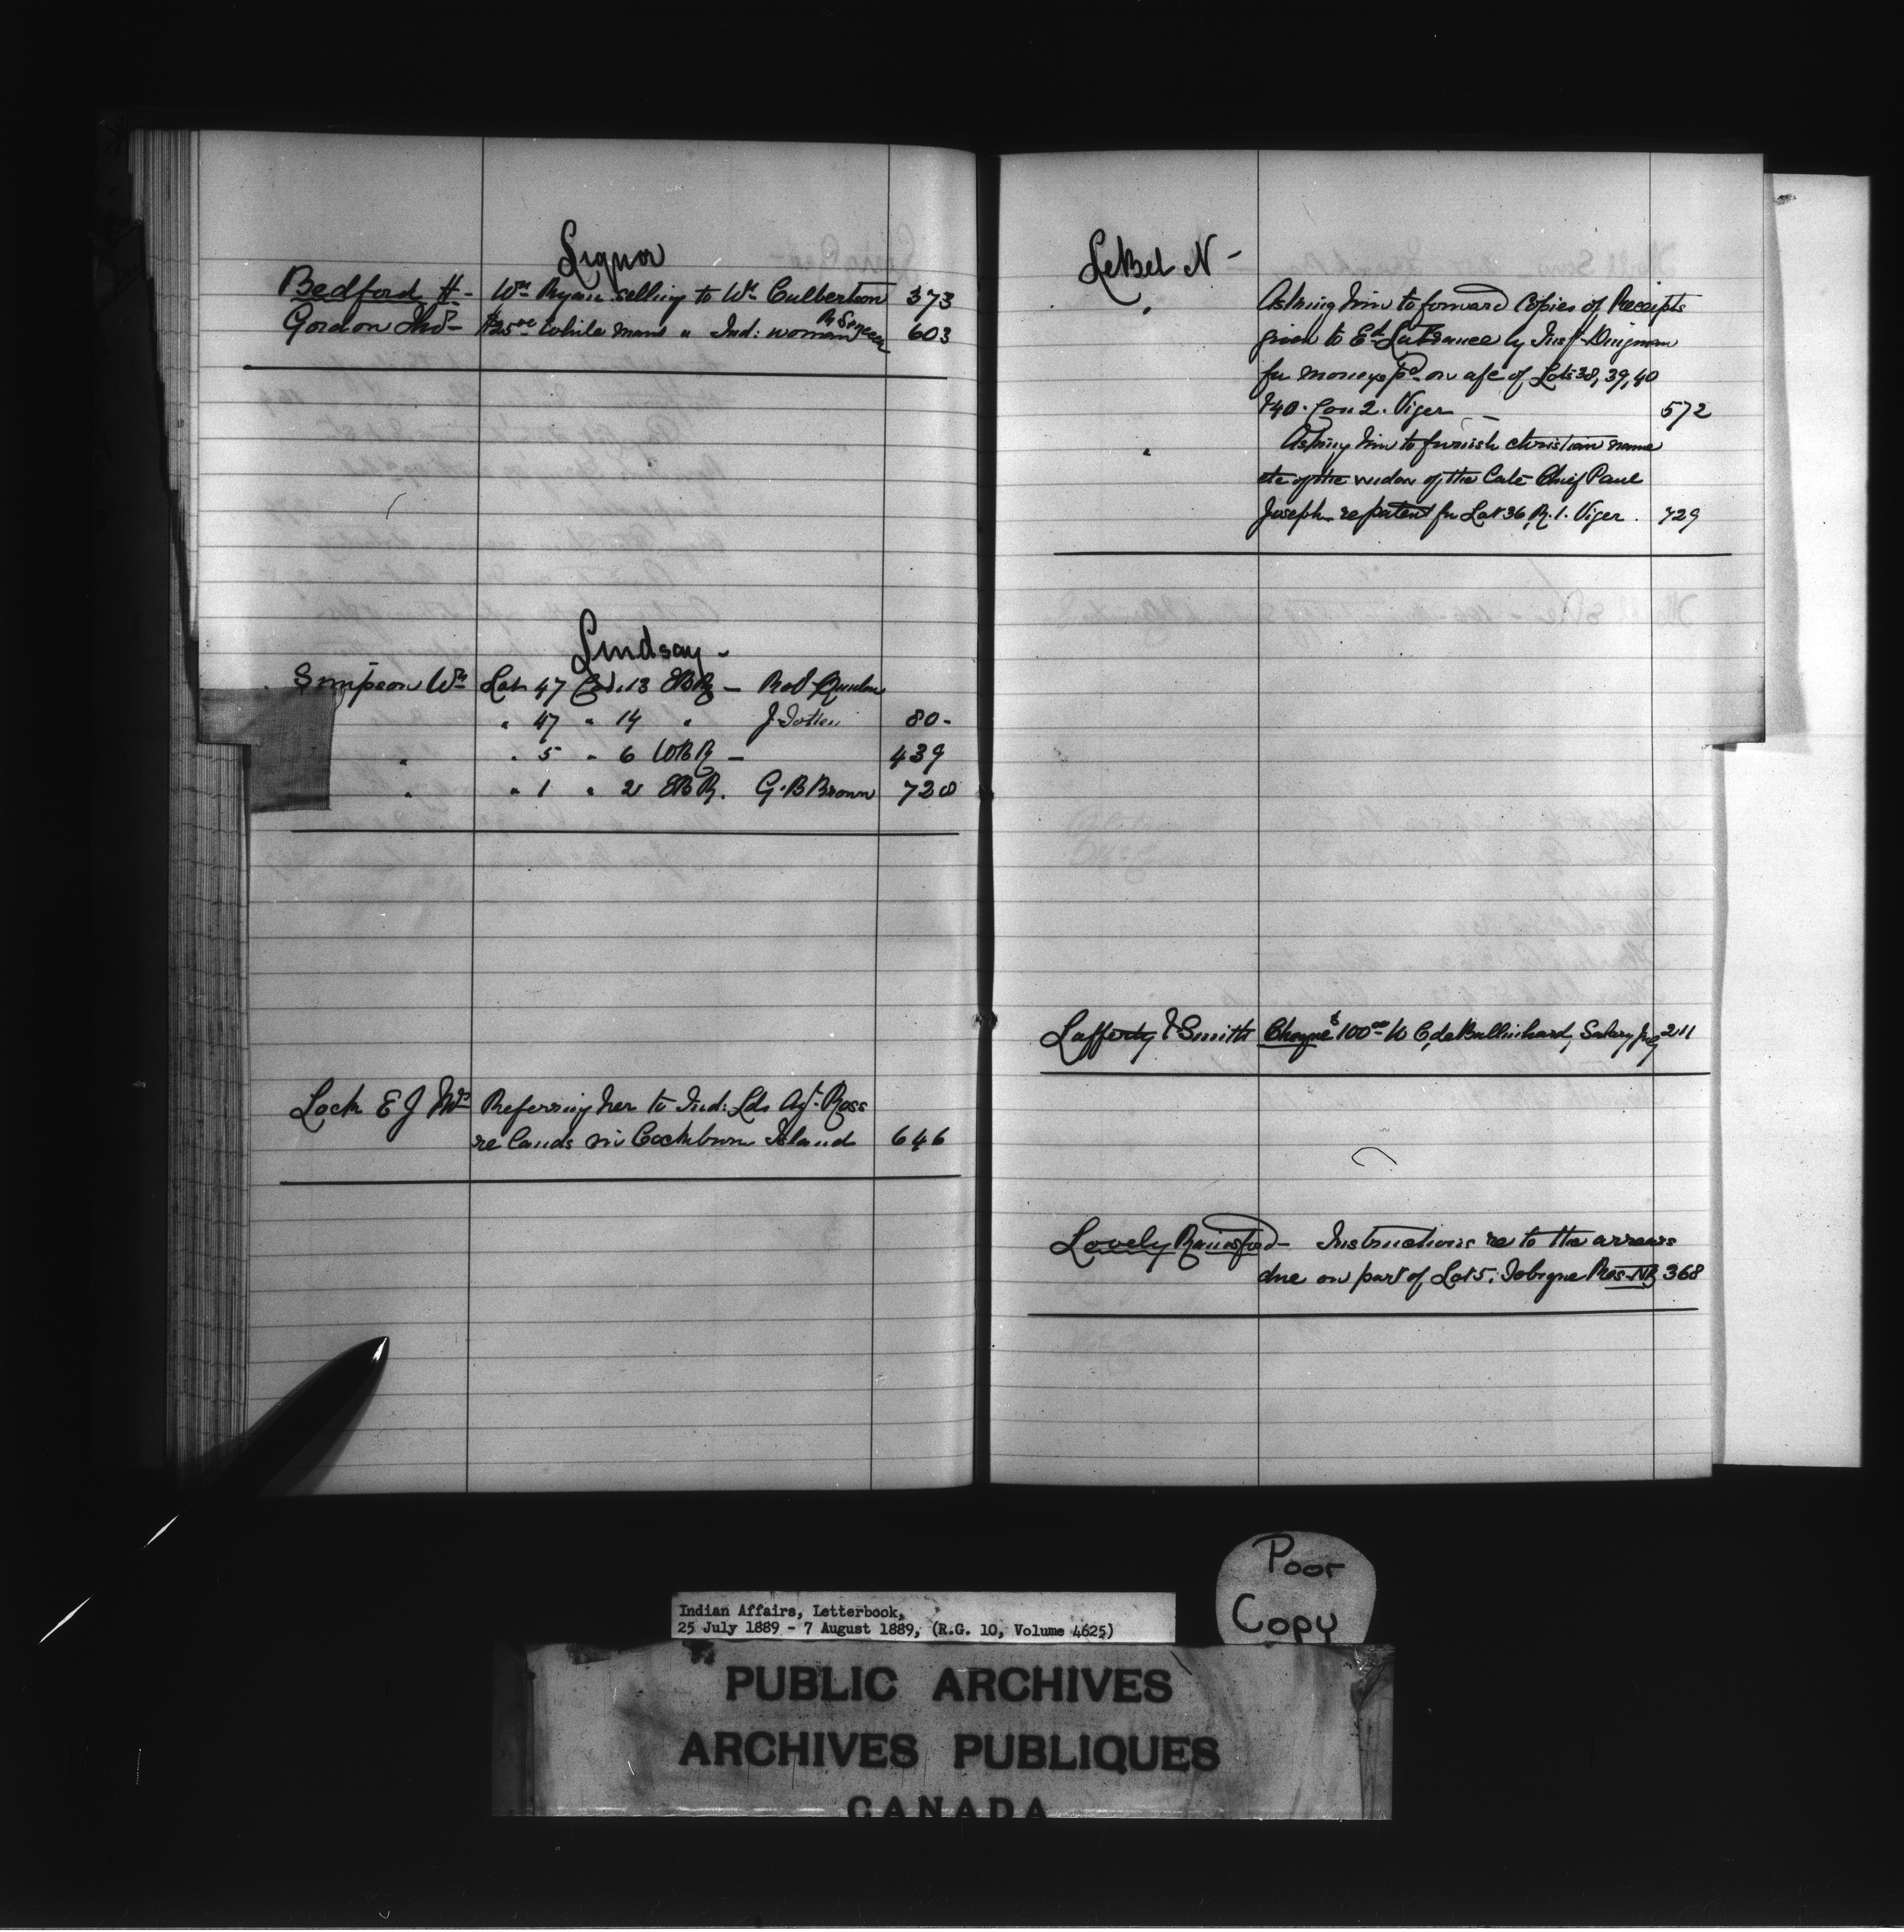 Liquor
Bedford H - Wm Ryan selling to Wm Culbertson 373
Gordon Thos - $25.00 White man " Ind: woman 603
Lindsay -
Simpson Wm Lot 47 Con. 13 EBR - Robt Quinlan
" 47 " 14 " J 80 -
" " 5 " 6 WBR - 439
" " 1 " 2 EBR. G. B Brown 728
Lock E J Mrs Referring her to Ind: Lds Agt. Ross
re lands on Cockburn Island 646
LeBel N -
" Asking him to forward Copies of Receipts
given to Ed. LaFrance by Insp. Dingman
for moneys pd on a/c of Lots 38, 39, 40
& 40. Con 2. Viger - 572
" Asking him to furnish christian name
etc of the widow of the late Chief Paul
Joseph re patent for Lot 36, R. 1. Viger. 729
Lafferty & Smith Cheque $100.00 to C, de Ballinhard, Salary 211
Lovely Rainsford - Instructions re to the arrears
due on part of Lot 5. Tobique Res. NB 368
Poor
Copy
Indian Affairs, Letterbook,
25 July 1889 - 7 August 1889, (R.G. 10, Volume 4625)
PUBLIC ARCHIVES
ARCHIVES PUBLIQUES
CANADA